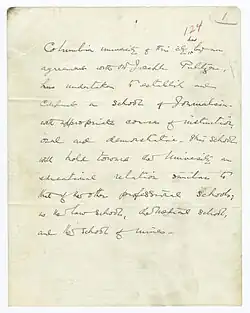 1
124
has
Columbia University of this city, by an
agreement with Mr Joseph Pulitzer,
has undertaken to establish and
conduct a school of Journalism
with appropriate courses of instruction,
oral and demonstrative. This school
will hold toward the University an
educational relation similar to
that of the other professional schools,
as the Law School, the Medical School,
and the School of Mines.